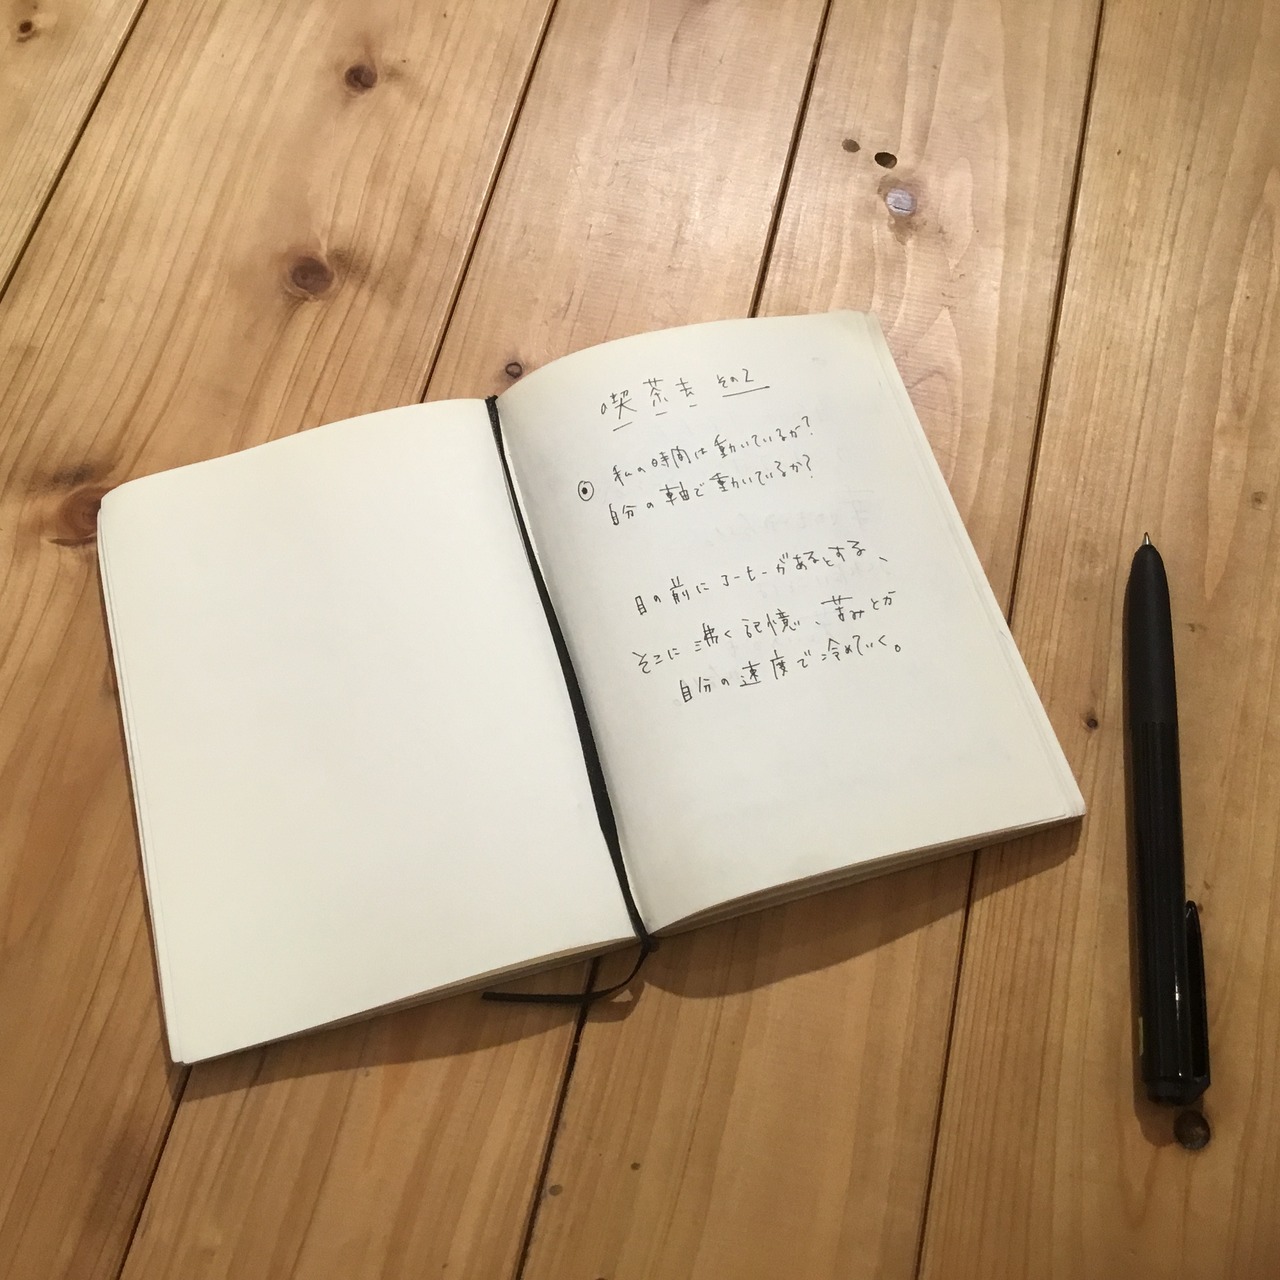 喫茶去 その2
私の時間は動いているか?
自分の軸で動いているか?
目の前にコーヒーがあるとする、
そこに沸く記憶、苦みとか
自分の速度で冷めていく。